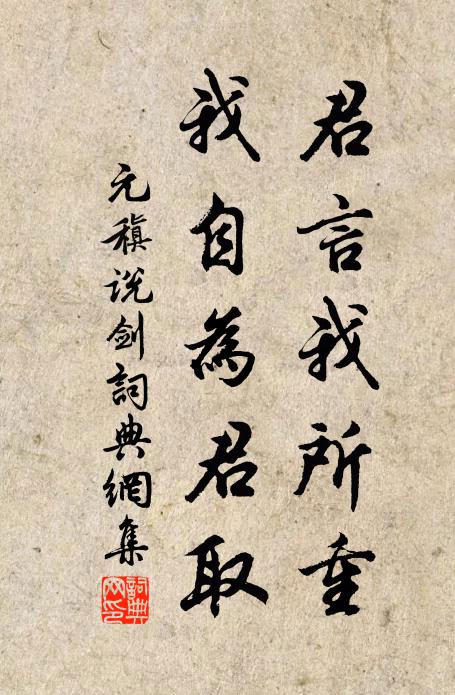 君言我所重
我自為君取
元稹说剑詞典網集
詞典網印